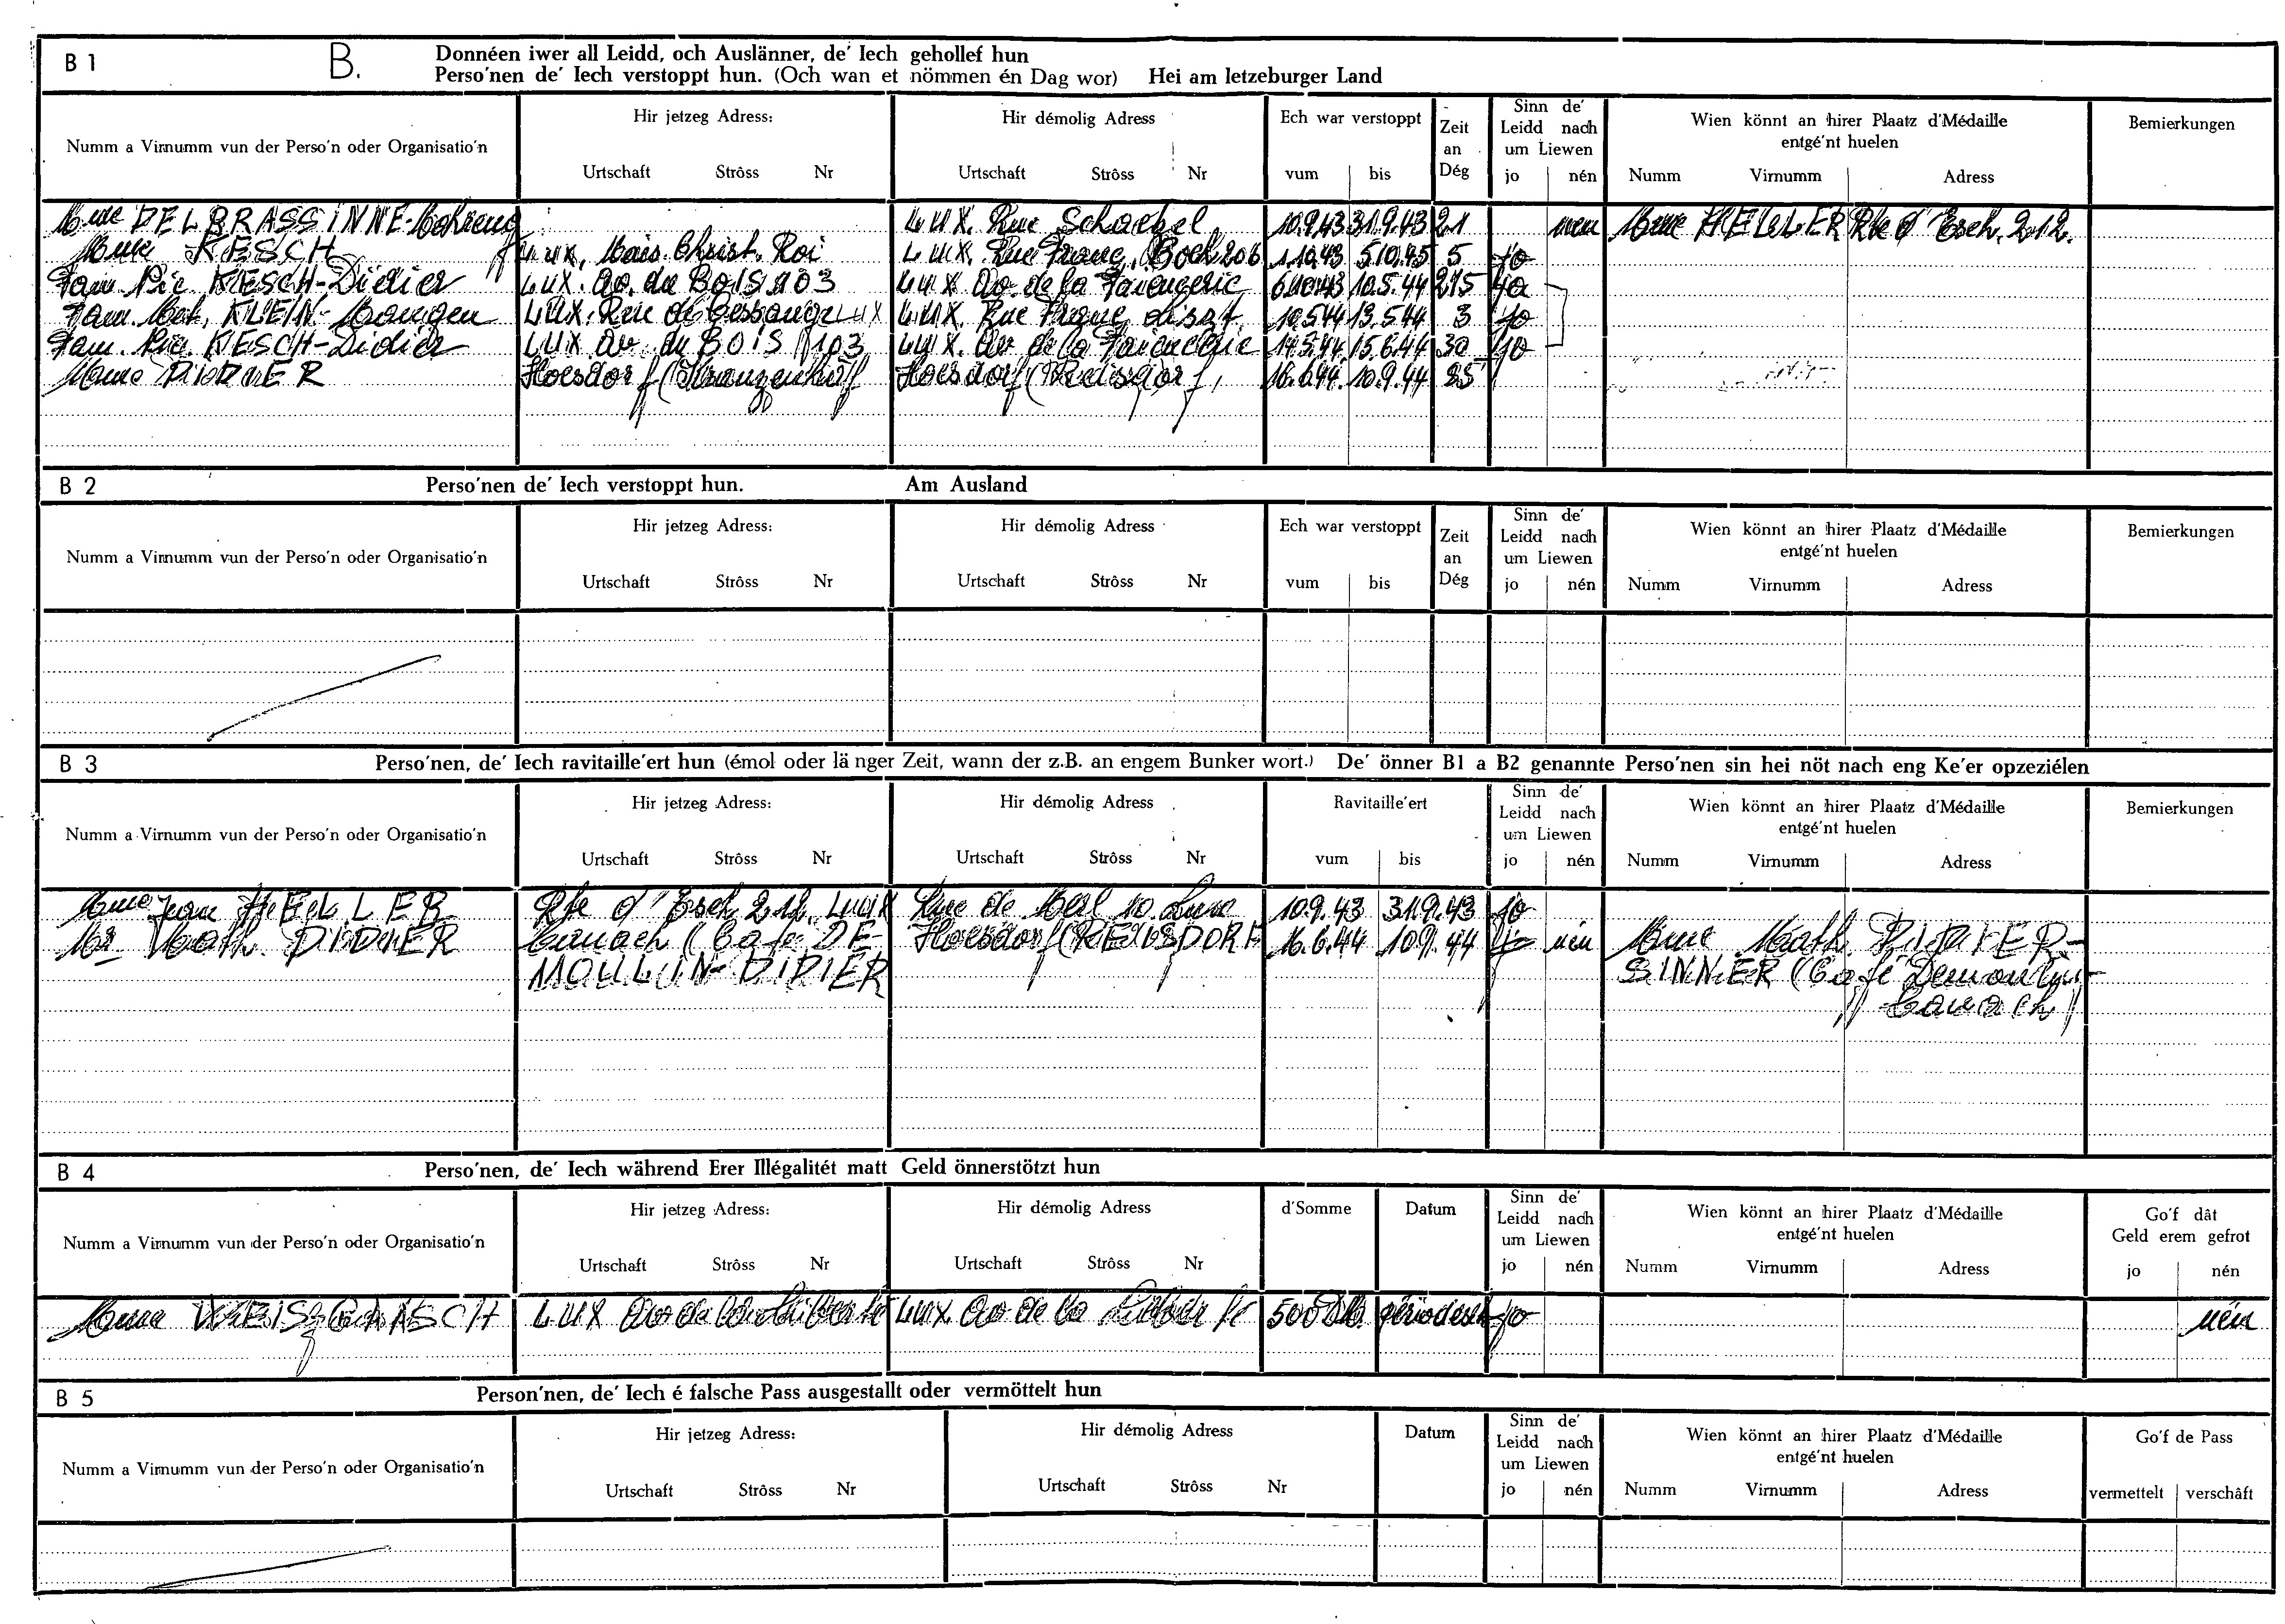 B 1 B. Donnéen iwer all Leidd, och Auslänner, de' Iech gehollef hun
Perso'nen de' Iech verstoppt hun. (Och wan et nömmen én Dag wor) Hei am letzeburger Land
Numm a Virnumm vun der Perso'n oder Organisatio'n
Hir jetzeg Adress:
Urtschaft Strôss Nr
Hir démolig Adress
Urtschaft Strôss Nr
Ech war verstoppt
vum bis
Zeit an Dég
Sinn de' Leidd nach um Liewen
jo nén
Wien könnt an hirer Plaatz d'Médaille entgé'nt huelen
Numm Virnumm Adress
Bemierkungen
Mme DELBRASSINNE- LUX. Rue Schoebel 10.9.43 31.9.43 21 nen Mme HELLER Rte d'Esch. 212.
Mme KESCH Lux, Mais. Christ. Roi LUX. Rue Franç. Boch 206 1.10.43 5.10.45 5 jo
Fam. Pie. KESCH-Didier LUX. av. du BOIS 103 LUX av. de la Faiencerie 6.10.43 10.5.44 215 jo
Fam. Mat. KLEIN- LUX. Rue de Cessange LUX LUX. Rue 10.5.44 13.5.44 3 jo
Fam. Pie. KESCH-Didier LUX av. du BOIS 103 LUX. av de la Faiencerie 14.5.44 15.6.44 30 jo
Mme DIDIER Hoesdorf ( Hoesdorf (Reisdorf) 16.6.44 10.9.44 85
B 2 Perso'nen de' Iech verstoppt hun. Am Ausland
Numm a Virnumm vun der Perso'n oder Organisatio'n
Hir jetzeg Adress:
Urtschaft Strôss Nr
Hir démolig Adress
Urtschaft Strôss Nr
Ech war verstoppt
vum bis
Zeit an Dég
Sinn de' Leidd nach um Liewen
jo nén
Wien könnt an hirer Plaatz d'Médaille entgé'nt huelen
Numm Virnumm Adress
Bemierkungen
B 3 Perso'nen, de' Iech ravitaille'ert hun (émol oder länger Zeit, wann der z.B. an engem Bunker wort.) De' önner B1 a B2 genannte Perso'nen sin hei nöt nach eng Ke'er opzeziélen
Numm a Virnumm vun der Perso'n oder Organisatio'n
Hir jetzeg Adress:
Urtschaft Strôss Nr
Hir démolig Adress
Urtschaft Strôss Nr
Ravitaille'ert
vum bis
Sinn de' Leidd nach um Liewen
jo nén
Wien könnt an hirer Plaatz d'Médaille entgé'nt huelen
Numm Virnumm Adress
Bemierkungen
Mme Jean HELLER Rte d'Esch 212. Rue de Merl 10 10.9.43 31.9.43 jo
Mr Math. DIDIER Canach (Café DE- Hoesdorf (REISDORF) 16.6.44 10.9.44 nén Mme Math. DIDIER-
MOULIN-DIDIER SINNER (Café Demoulin-
Canach)
B 4 Perso'nen, de' Iech während Erer Illégalitét matt Geld önnerstötzt hun
Numm a Virnumm vun der Perso'n oder Organisatio'n
Hir jetzeg Adress:
Urtschaft Strôss Nr
Hir démolig Adress
Urtschaft Strôss Nr
d'Somme
Datum
Sinn de' Leidd nach um Liewen
jo nén
Wien könnt an hirer Plaatz d'Médaille entgé'nt huelen
Numm Virnumm Adress
Go'f dât Geld erem gefrot
jo nén
Mme LUX av de la Liberté LUX av de la 500 jo nén
B 5 Person'nen, de' Iech é falsche Pass ausgestallt oder vermöttelt hun
Numm a Virnumm vun der Perso'n oder Organisatio'n
Hir jetzeg Adress:
Urtschaft Strôss Nr
Hir démolig Adress
Urtschaft Strôss Nr
Datum
Sinn de' Leidd nach um Liewen
jo nén
Wien könnt an hirer Plaatz d'Médaille entgé'nt huelen
Numm Virnumm Adress
Go'f de Pass
vermettelt verschâft